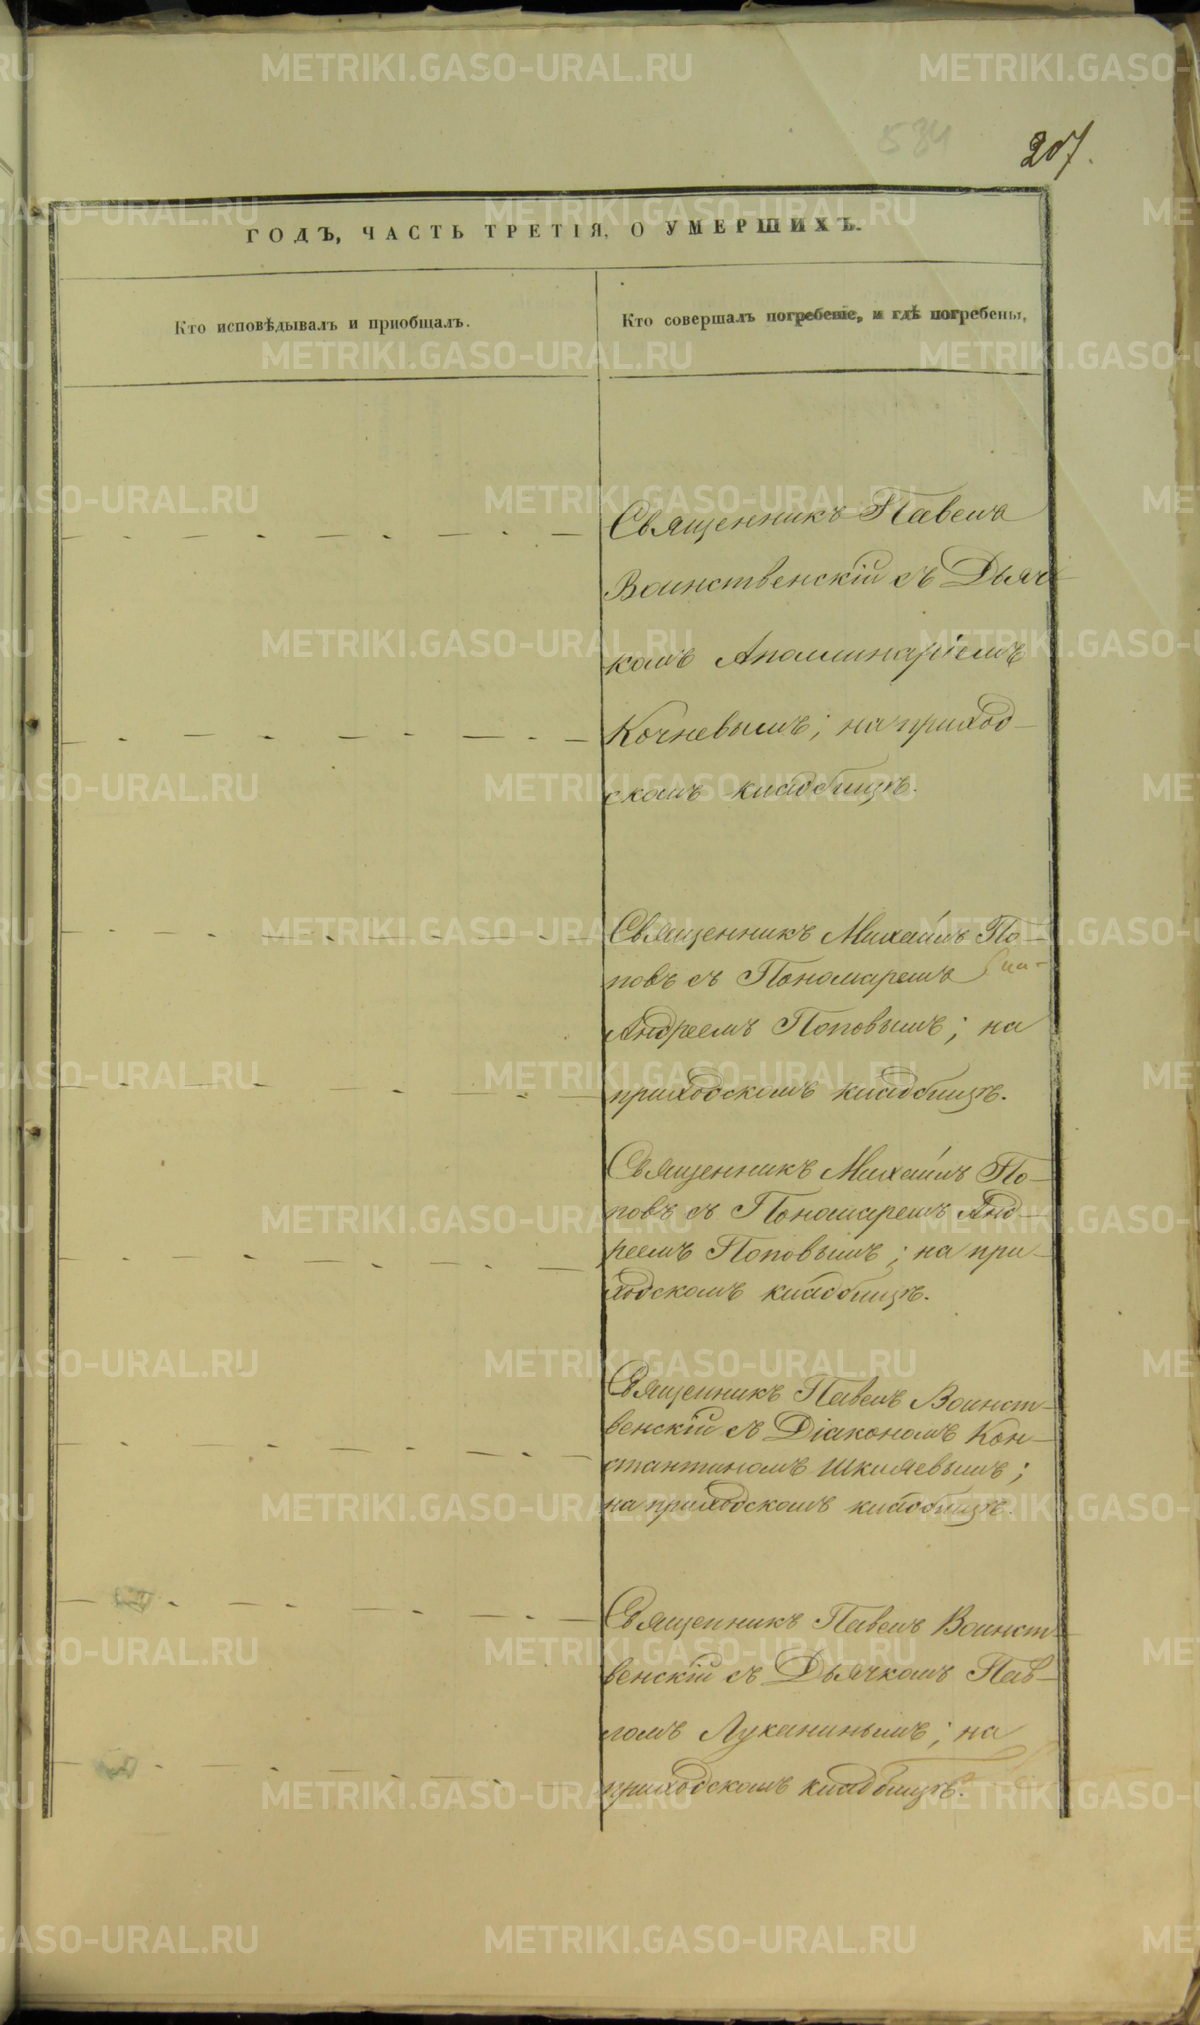 584
207.
ГОДЪ, ЧАСТЬ ТРЕТІЯ, О УМЕРШИХЪ.
Кто исповѣдывалъ и пріобщалъ.
Кто совершалъ погребеніе, и гдѣ погребены,
Священникъ Павелъ
Воинственскій съ Дьяч-
комъ Аполлинаріемъ
Кочневымъ; на приход-
скомъ кладбищѣ.
Священникъ Михаилъ По-
повъ съ Пономаремъ
Андреемъ Поповымъ; на
приходскомъ кладбищѣ.
Священникъ Михаилъ По-
повъ съ Пономаремъ Анд-
реемъ Поповымъ; на при-
ходскомъ кладбищѣ.
Священникъ Павелъ Воинст-
венскій съ Діакономъ Кон-
стантиномъ Шкляевымъ;
на приходскомъ кладбищѣ.
Священникъ Павелъ Воинст-
венскій съ Дьячкомъ Пав-
ломъ Луканинымъ; на
приходскомъ кладбищѣ.
METRIKI.GASO-URAL.RU